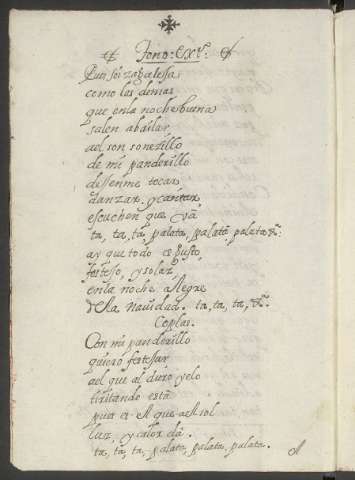 Tono: CXVº:
Pues soi zagaleja
como las demas
que enla noche buena
salen abailar
ael son sonezillo
de mi panderillo
dejenme tocar
danzar, y cantar
escuchen que vá
ta, ta, ta, palata, palata, palata &:
ay que todo es gusto
festejo, y solaz
enla noche Alegre
dela nauidad. ta, ta, ta, &.
Coplas.
Con mi panderillo
quiero festejar
ael que al duro yelo
tiritando está
pues es el que ael sol
luz, y calor dá.
ta, ta, ta, palata, palata, palata.